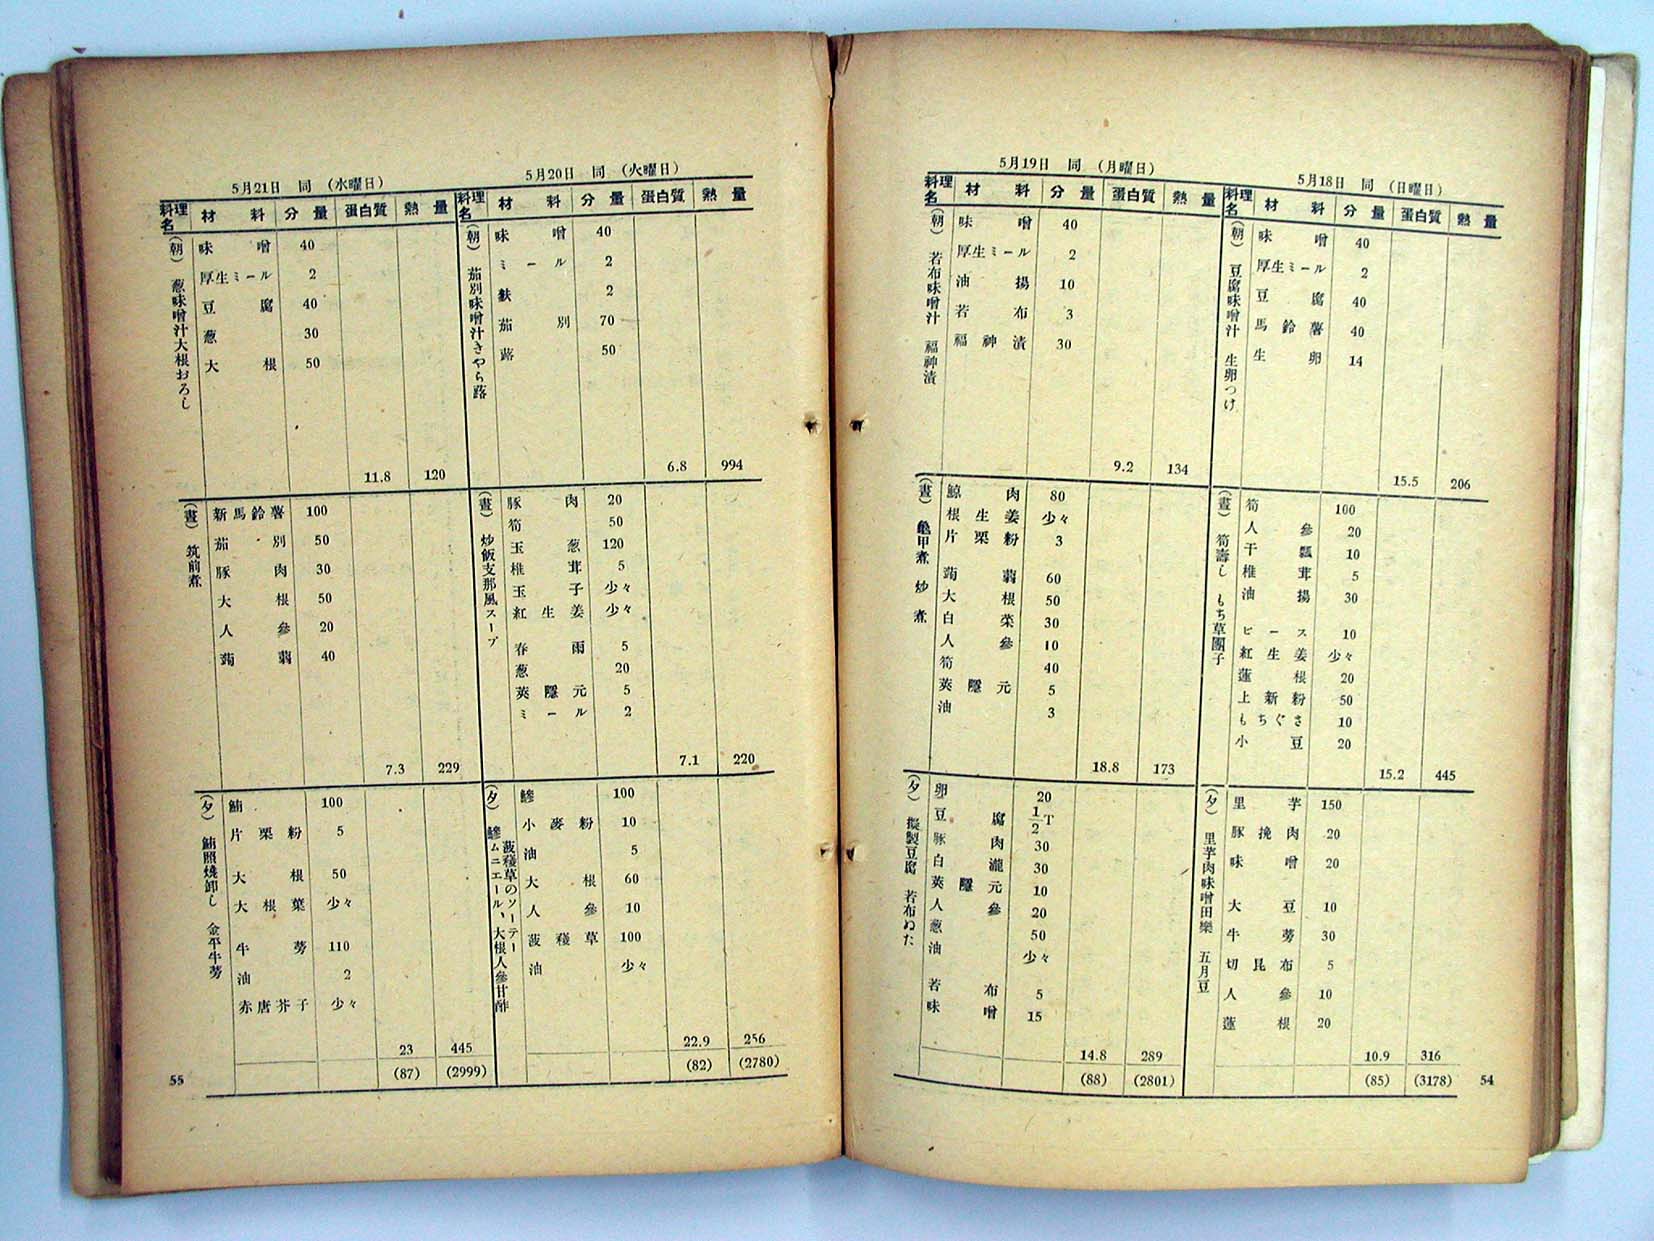 5月18日 同 (日曜日)
料理名 材料 分量 蛋白質 熱量
(朝) 豆腐味噌汁 生卵つけ
味噌 40
厚生ミール 2
豆腐 40
馬鈴薯 40
生卵 14
15.5 206
(晝) 筍壽し もち草團子
筍 100
人參 20
干瓢 10
椎茸 5
油揚 30
ピース 10
紅生姜 少々
蓮根 20
上新粉 50
もちぐさ 10
小豆 20
15.2 445
(夕) 里芋肉味噌田樂 五月豆
里芋 150
豚挽肉 20
味噌 20
大豆 10
牛蒡 30
切昆布 5
人參 10
蓮根 20
10.9 316
(85) (3178)
54
5月19日 同 (月曜日)
料理名 材料 分量 蛋白質 熱量
(朝) 若布味噌汁 福神漬
味噌 40
厚生ミール 2
油揚 10
若布 3
福神漬 30
9.2 134
(晝) 龜甲煮 炒煮
鯨肉 80
根生姜 少々
片栗粉 3
蒟蒻 60
大根 50
白菜 30
人參 10
筍 40
莢隱元 5
油 3
18.8 173
(夕) 擬製豆腐 若布ぬた
卵 20
豆腐 1/2T
豚肉 30
白瀧 30
莢隱元 10
人參 20
葱 50
油 少々
若布 5
味噌 15
14.8 289
(88) (2801)
5月20日 同 (火曜日)
料理名 材料 分量 蛋白質 熱量
(朝) 茄別味噌汁きやら蕗
味噌 40
ミール 2
麸 2
茄別 70
蕗 50
6.8 994
(晝) 炒飯支那風スープ
豚肉 20
筍 50
玉葱 120
椎茸 5
玉子 少々
紅生姜 少々
春雨 5
葱 20
莢隱元 5
ミール 2
7.1 220
(夕) 鰺ムニエール、大根人參甘酢
菠薐草のソーテー
鰺 100
小麥粉 10
油 5
大根 60
人參 10
菠薐草 100
油 少々
22.9 256
(82) (2780)
5月21日 同 (水曜日)
料理名 材料 分量 蛋白質 熱量
(朝) 葱味噌汁大根おろし
味噌 40
厚生ミール 2
豆腐 40
葱 30
大根 50
11.8 120
(晝) 筑前煮
新馬鈴薯 100
茄別 50
豚肉 30
大根 50
人參 20
蒟蒻 40
7.3 229
(夕) 鮪照燒卸し 金平牛蒡
鮪 100
片栗粉 5
大根 50
大根葉 少々
牛蒡 110
油 2
赤唐芥子 少々
23 445
(87) (2999)
55